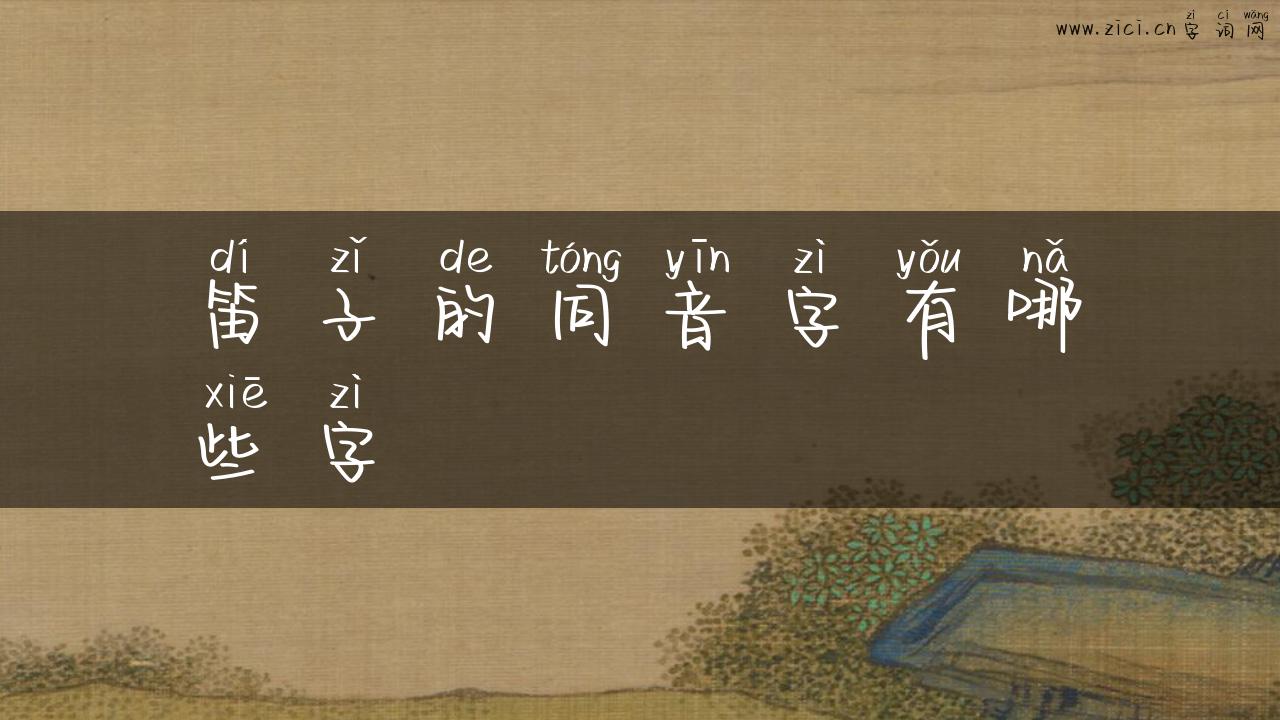 zì cí wǎng
www.zici.cn 字 词 网
dí zǐ de tóng yīn zì yǒu nǎ
笛 子 的 同 音 字 有 哪
xiē zì
些 字